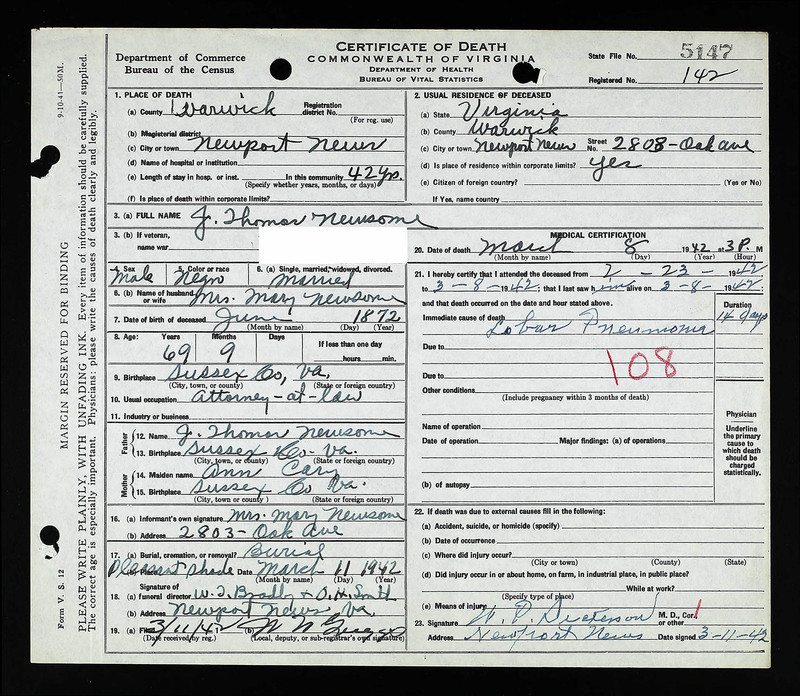 CERTIFICATE OF DEATH
COMMONWEALTH OF VIRGINIA
DEPARTMENT OF HEALTH
BUREAU OF VITAL STATISTICS
Department of Commerce
Bureau of the Census
State File No. 5147
Registered No. 142
9-10-41—50M.
MARGIN RESERVED FOR BINDING
PLEASE WRITE PLAINLY, WITH UNFADING INK. Every item of information should be carefully supplied.
The correct age is especially important. Physicians: please write the causes of death clearly and legibly.
Form V. S. 12
1. PLACE OF DEATH
(a) County Warwick Registration district No.
(For reg. use)
(b) Magisterial district
(c) City or town Newport News
(d) Name of hospital or institution
(e) Length of stay in hosp. or inst. In this community 42 yrs.
(Specify whether years, months, or days)
(f) Is place of death within corporate limits?
2. USUAL RESIDENCE OF DECEASED
(a) State Virginia
(b) County Warwick
(c) City or town Newport News Street No. 2808-Oak ave
(d) Is place of residence within corporate limits? yes
(e) Citizen of foreign country? (Yes or No)
If Yes, name country
3. (a) FULL NAME J. Thomas Newsome
3. (b) If veteran,
name war
4. Sex Male 5. Color or race Negro 6. (a) Single, married, widowed, divorced. Married
6. (b) Name of husband or wife Mrs. Mary Newsome
7. Date of birth of deceased June 1872
(Month by name) (Day) (Year)
8. Age: Years Months Days If less than one day
69 9 hours min.
9. Birthplace Sussex Co, Va.
(City, town, or county) (State or foreign country)
10. Usual occupation Attorney-at-law
11. Industry or business
Father
12. Name J. Thomas Newsome
13. Birthplace Sussex Co- Va.
(City, town, or county) (State or foreign country)
Mother
14. Maiden name Ann Cary
15. Birthplace Sussex Co Va.
(City, town or county) (State or foreign country)
16. (a) Informant's own signature Mrs. Mary Newsome
(b) Address 2803- Oak Ave
17. (a) Burial, cremation, or removal? Burial
(b) Place Pleasant Shade Date March 11 1942
(Month by name) (Day) (Year)
Signature of
18. (a) funeral director W. J. Bradby + O. H. Smith
(b) Address Newport News, Va.
19. (a) Filed 3/11/42 (b)
(Date received by reg.) (Local, deputy, or sub-registrar's own signature)
MEDICAL CERTIFICATION
20. Date of death March 8 1942 at 3 P. M
(Month by name) (Day) (Year) (Hour)
21. I hereby certify that I attended the deceased from 2 - 23 - 1942
to 3-8-1942; that I last saw him alive on 3-8- 1942;
and that death occurred on the date and hour stated above.
Duration
Immediate cause of death 14 days
Lobar Pneumonia
Due to
108
Due to
Other conditions
(Include pregnancy within 3 months of death)
Name of operation
Date of operation Major findings: (a) of operations
(b) of autopsy
Physician
Underline
the primary
cause to
which death
should be
charged
statistically.
22. If death was due to external causes fill in the following:
(a) Accident, suicide, or homicide (specify)
(b) Date of occurrence
(c) Where did injury occur?
(City or town) (County) (State)
(d) Did injury occur in or about home, on farm, in industrial place, in public place?
While at work?
(Specify type of place)
(e) Means of injury
23. Signature W. P. Dickerson M. D., Cor. or other
Address Newport News Date signed 3-11-42